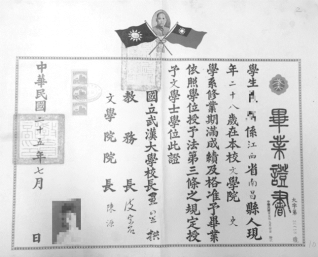 畢業證書
學生 係江西省南昌縣人現
年二十八歲在本校文學院 史
學系修業期滿成績及格准予畢業
依照學位授予法第三條之規定授
予文學士學位此證
國立武漢大學校長 王星拱
教務長 皮宗石
文學院院長 陳源
中華民國二十五年七月 日